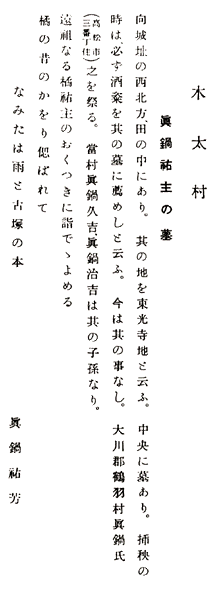 木太村
眞鍋祐主の墓
向城址の西北方、田の中にあり。其の地を東光寺地と云ふ。中央に墓あり。挿秧の
時は、必ず酒粢を其の墓に薦めしと云ふ。今は其の事なし。大川郡鶴羽村眞鍋氏
(高松市三番丁住)之を祭る。當村眞鍋久吉、眞鍋治吉は其の子孫なり。
遠祖なる橘祐主のおくつきに詣でゝよめる
橘の昔のかをり偲ばれて
なみたは雨と古塚の本
眞鍋祐芳